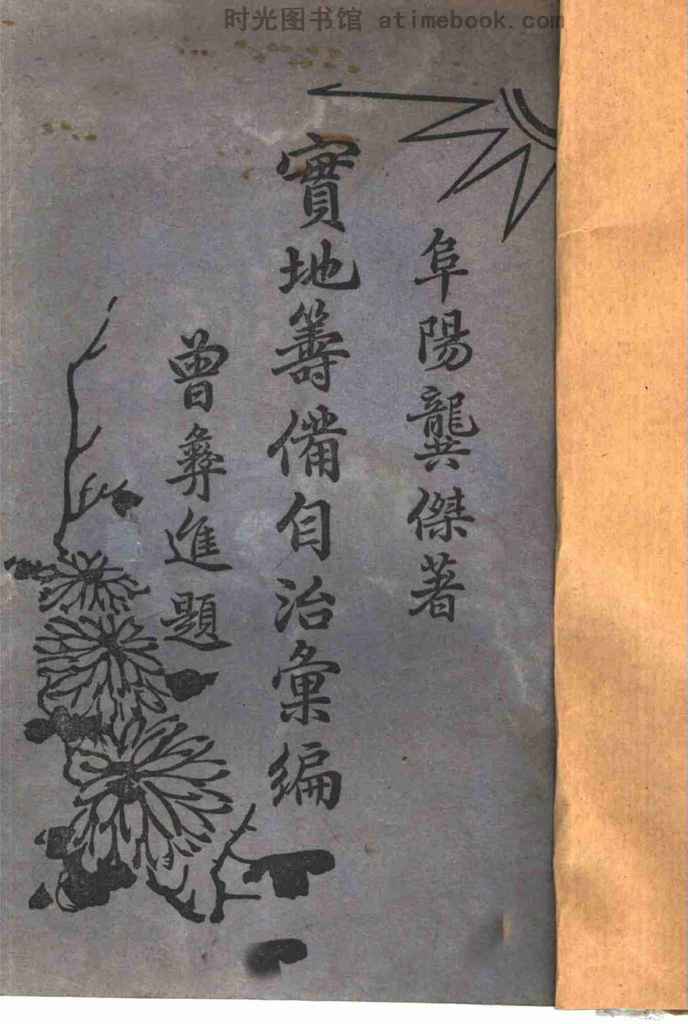 时光图书馆 atimebook.com
阜陽龔傑著
實地籌備自治彙編
曾彝進題